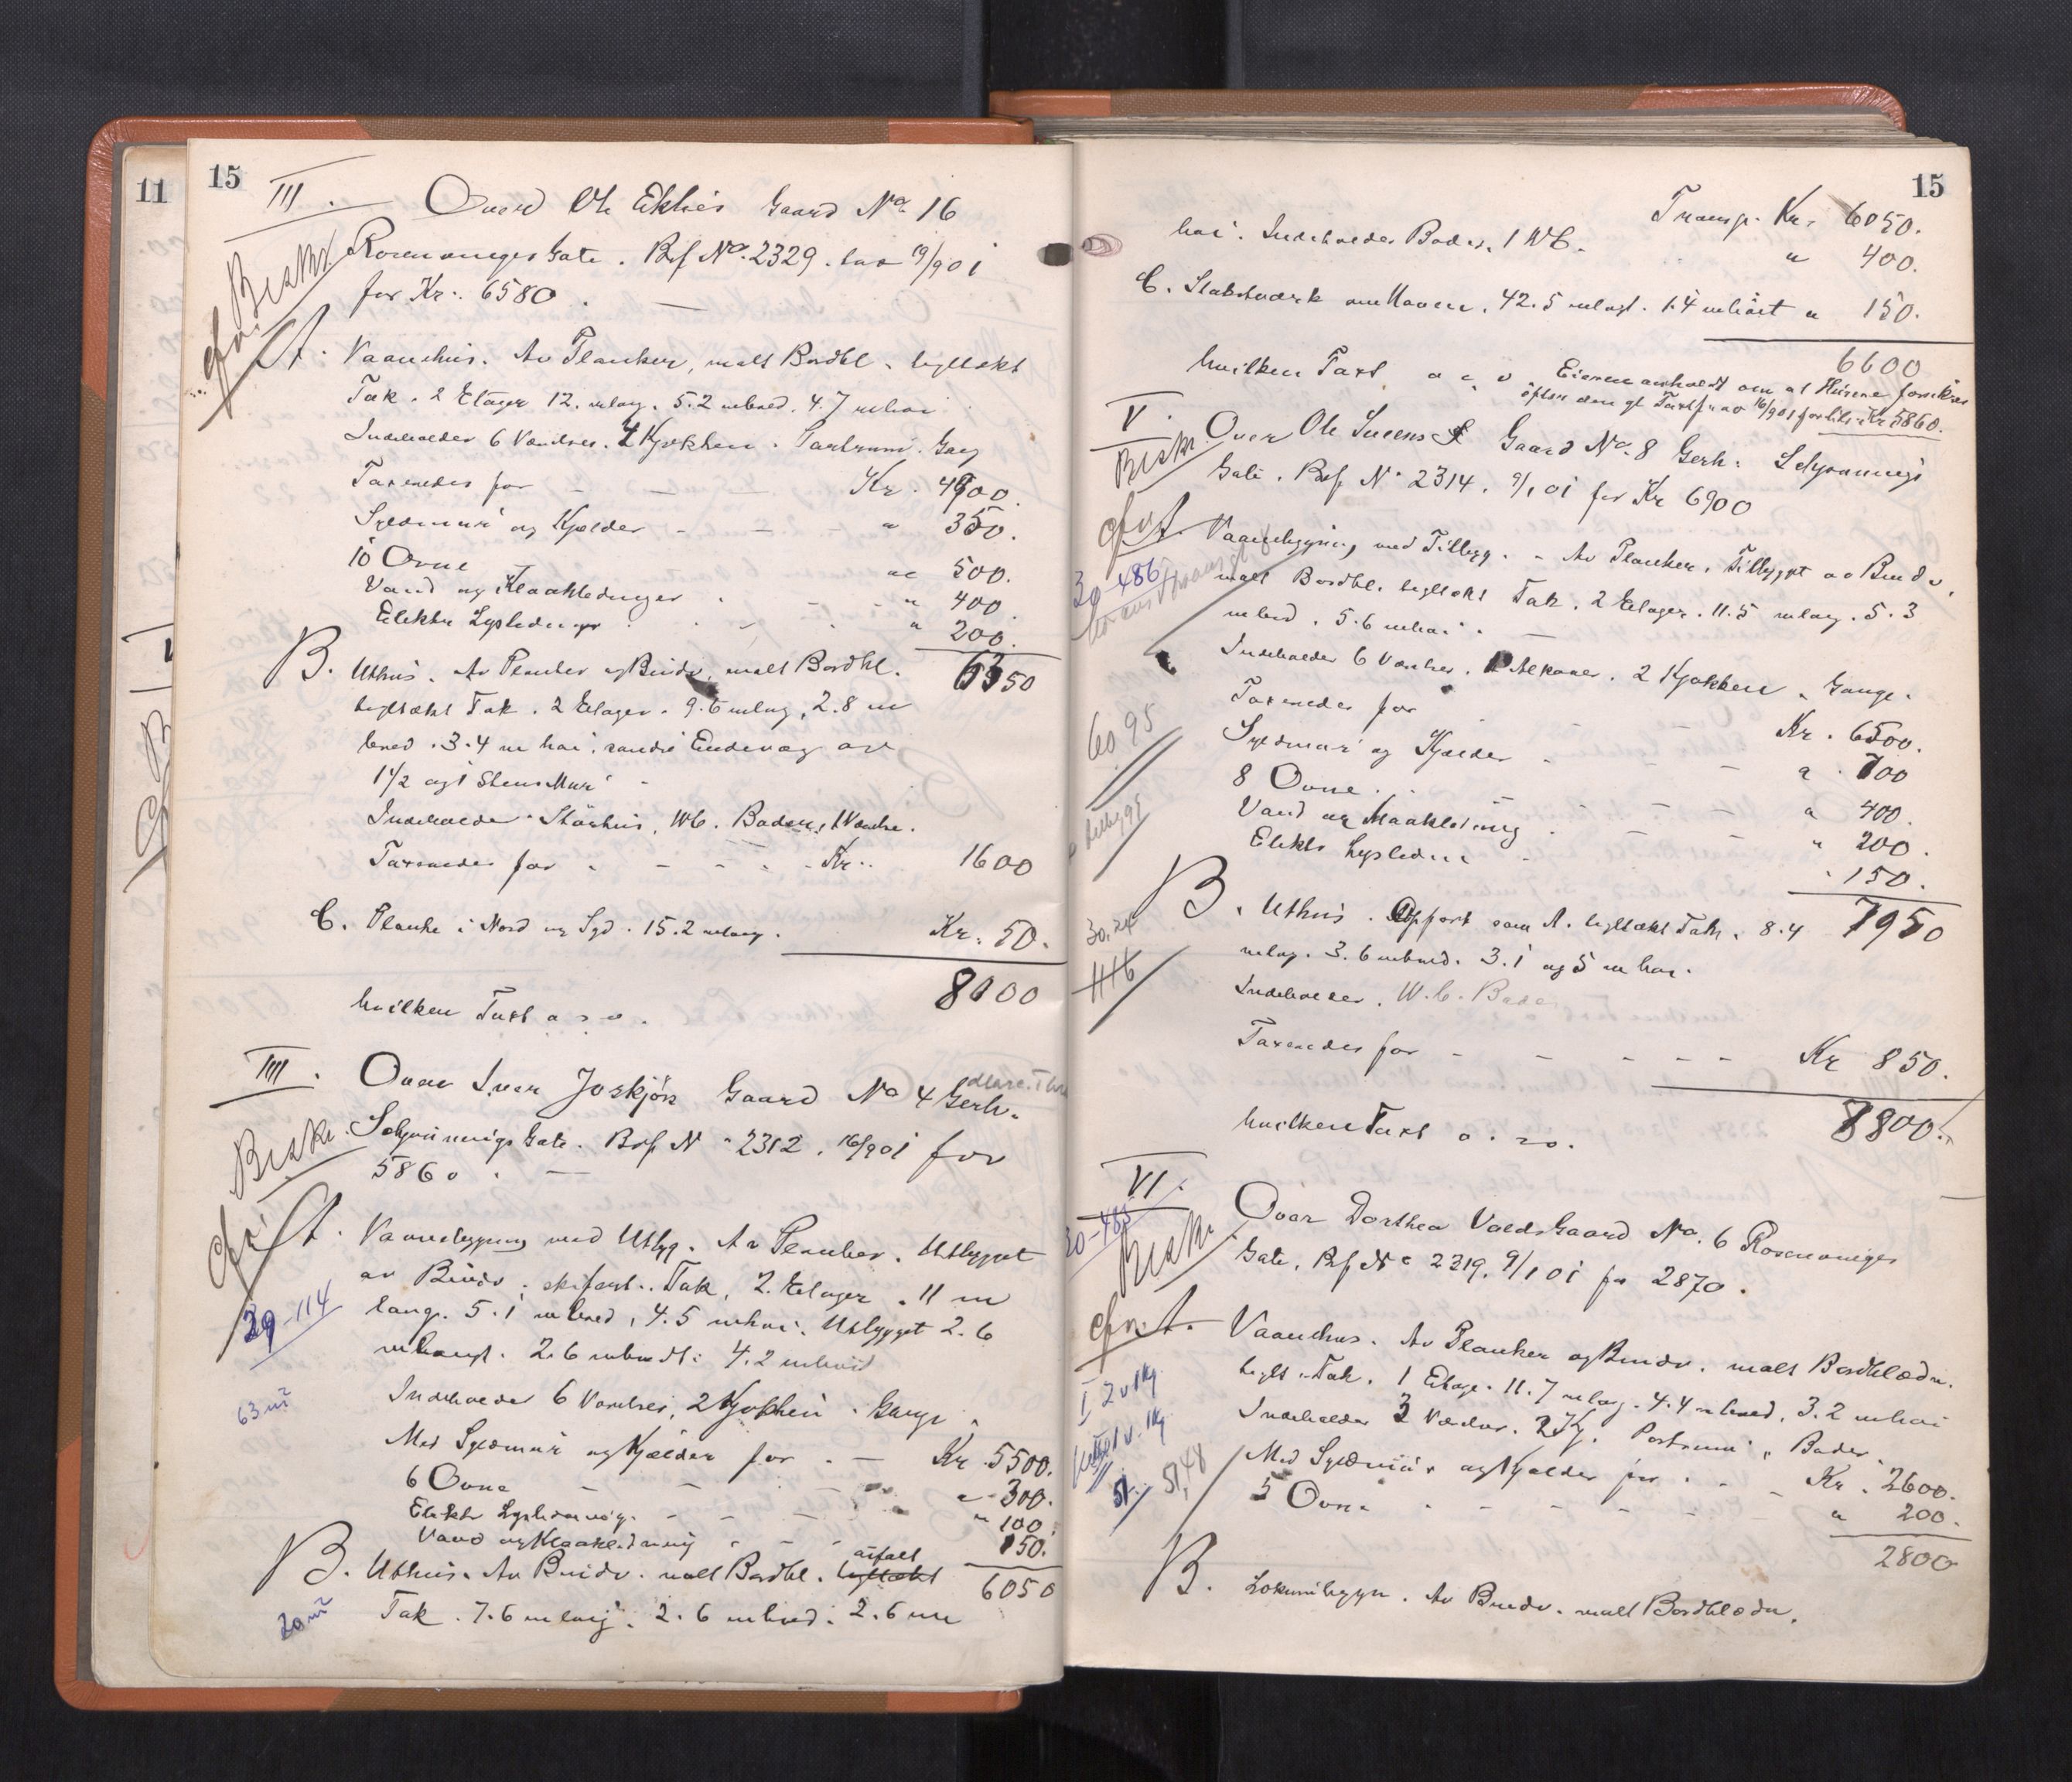 11
15
III. Over Ole Eklies Gaard No 16
Rosenvinges Gate. Brf No. 2329. 19/9 01
for Kr. 6580.
Beskr
A. Vaanehus. Av Planker, malt Bordkl. tegltækt
Tak. 2 Etager 12. m lang. 5.2 m bred. 4.7 m høi
Indeholder 6 Værelser. 2 Kjøkken. Portrum. Gang
Taxeredes for - - - Kr. 4900.
Syldmur og Kjelder - - - " 350.
10 Ovne " 500.
Vand og Kloakledninger . - - " 400
Elektr Lysledninger . - . " 200.
6350
B. Uthus. Av Planker og Bindv. malt Bordkl.
tegltækt Tak. 2 Etager. 9.6 m lang, 2.8 m
bred. 3.4 m høi. søndre Endevæg av
1 1/2 agt Stens Mur
Indeholder Skaahus, WC. Boder, 1 Værelse.
Taxeredes for - - - - Kr. 1600
C. Planke i Nord og Syd. 15.2 m lang. Kr. 50.
8000
hvilken Taxt o s v.
IIII. Over Iver Joskjøs Gaard No 4 Gerh.
Schønnings Gate. Brf N. 2312. 16/9 01 for
5860.
Beskr.
A. Vaanebygning med Utbyg. Av Planker. Utbygget
av Bindv. skifert. Tak, 2 Etager. 11 m
lang. 5.1 m bred, 4.5 m høi. Utbygget 2.6
m langt. 2.6 m bredt. 4.2 m høit
39-114
63 m²
Indeholder 6 Værelser, 2 Kjøkken. Gange.
Med Syldmur og Kjelder for . - Kr. 5500.
6 Ovne - - - - " 300.
Elektr Lysledning. - - - - " 100.
Vand og Kloakledning - - - 150.
6050
B. Uthus. Av Bindv. malt Bordkl. tegltækt asfalt
Tak. 7.6 m lang. 2.6 m bred. 2.6 m
20 m²
15
Transp. Kr. 6050.
høi. Indeholder Boder, 1 WC. " 400.
C. Stakitværk om Haven. 42.5 m langt. 1.4 m høit " 150.
6600
hvilken Taxt o s v Eieren anholdt om at Husene forsikres
efter den gl Taxtfr av 16/9 01 for tils. Kr 5860.
V. Over Ole Svens Gaard No. 8 Gerh. Schønnings
Gate. Brf No 2314. 9/1 01 for Kr 6900
Beskr
A. Vaanebygning med Tilbygg. - Av Planker, Tilbygget av Bindv,
malt Bordkl. tegltækt Tak. 2 Etager. 11.5 m lang. 5.3
m bred. 5.6 m høi.
30-486
Indeholder 6 Værelser. 2 Alkover. 2 Kjøkken. Gange.
Taxeredes for Kr. 6500.
Syldmur og Kjelder - - - " 700
8 Ovne . . - - - " 400.
Vand og Kloakledning . - - - " 200.
Elektr Lysledn - . 150.
60.95
30.24
116
7950
B. Uthus. Opført som A. tegltækt Tak. 8.4
m lang. 3.6 m bred. 3.1 og 5 m høi.
Indeholder. W.C. Boder
Taxeredes for - - - - - Kr 850.
8800.
hvilken Taxt o. s v.
VI. Over Dorthea Volds Gaard No. 6 Rosenvinges
Gate, Brf No 2319. 9/1 01 for 2870.
Beskr
A. Vaanehus. Av Planker og Bindv. malt Bordklædn.
teglt. Tak. 1 Etage. 11.7 m lang. 4.4 m bred, 3.2 m høi
Indeholder 3 Værelser. 2 Kj. Portrum, Boder.
Med Syldmur og Kjelder for . - - Kr. 2600.
5 Ovne . - - - - - " 200.
2800
51,48
B. Lokumbygn. Av Bindv. malt Bordklædn.